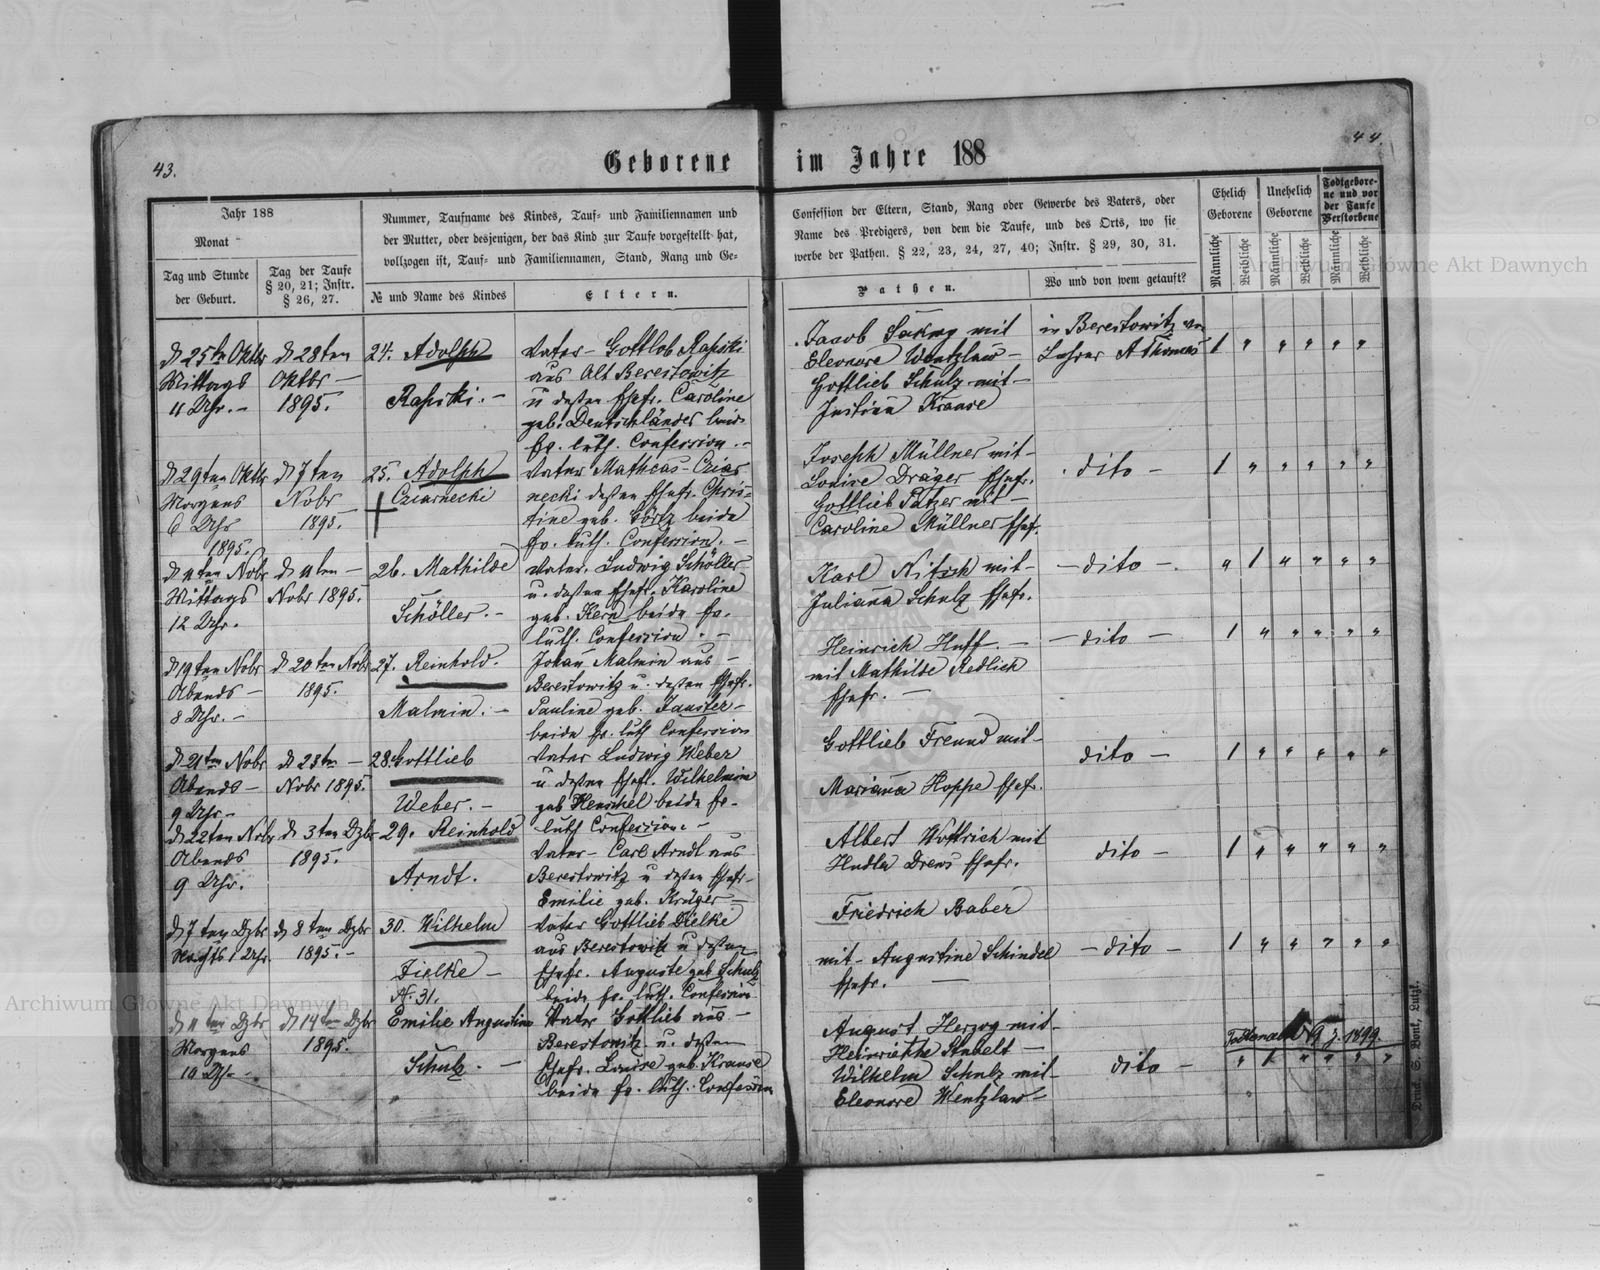 43.
44.
Geborene im Jahre 188
Jahr 188
Monat
Tag und Stunde
der Geburt.
Tag der Taufe
§ 20, 21; Instr.
§ 26, 27.
Nummer, Taufname des Kindes, Tauf- und Familiennamen und
der Mutter, oder desjenigen, der das Kind zur Taufe vorgestellt hat,
vollzogen ist, Tauf- und Familiennamen, Stand, Rang und Ge-
№ und Name des Kindes
Eltern.
Confession der Eltern, Stand, Rang oder Gewerbe des Vaters, oder
Name des Predigers, von dem die Taufe, und des Orts, wo sie
werbe der Pathen. § 22, 23, 24, 27, 40; Instr. § 29, 30, 31.
Pathen.
Wo und von wem getauft?
Ehelich
Geborene
Unehelich
Geborene
Todtgebore-
ne und vor
der Taufe
Verstorbene
Männliche
Weibliche
Männliche
Weibliche
Männliche
Weibliche
d 25ten Oktbr
Mittags
4 Uhr. -
d 28ten
Oktbr -
1895.
24. Adolph
Rapski. -
Vater - Gottlob Rapski
aus Alt Berestowitz
u deßen Ehefr. Caroline
geb. Deutschländer beide
ev. luth. Confession. -
Jacob mit
Eleonore Wentzlaw -
Gottlieb Schulz mit -
Justina Krause
in Berestowitz von
Lehrer A Thomas
1 " " " " "
d 29ten Oktbr
Morgens
6 Uhr
1895.
d 7ten
Nobr
1895. -
25. Adolph
Czarnecki
Vater Matheas Czar
necki deßen Ehefr. Chris=
tine geb. Görtz beide
ev. luth. Confession. -
Joseph Müllner mit -
Louise Dräger Ehefr.
Gottlieb Patzer mit -
Caroline Müllner Ehefr.
dito -
1 " " " " "
d 4ten Nobr
Mittags
12 Uhr.
d 4ten -
Nobr 1895.
26. Mathilde
Schöller. -
Vater. Ludwig Schöller
u. deßen Ehefr. Karoline
geb. Kern beide ev.
luth. Confession. -
Karl Nitsch mit -
Juliana Schulz Ehefr.
- dito -
" 1 " " " "
d 19ten Nobr
Abends -
8 Uhr. -
d 20ten Nobr
1895.
27. Reinhold.
Malmin. -
Johan Malmin aus -
Berestowitz u. deßen Ehefr.
Pauline geb. Fauster -
beide ev. luth Confession
Heinrich Huff. -
mit Mathilde Redlich
Ehefr. -
- dito -
1 " " " " "
d 21ten Nobr
Abends -
9 Uhr -
d 23ten -
Nobr 1895.
28. Gottlieb
Weber. -
Vater Ludwig Weber
u. deßen Ehefr. Wilhelmine
geb Henschel beide ev.
luth Confession. -
Gottlieb Freund mit -
Mariana Hoppe Ehefr.
dito -
1 " " " " "
d 22ten Nobr
Abends
9 Uhr.
d 3ten Dzbr
1895.
29. Reinhold
Arndt.
Vater - Carl Arndt aus
Berestowitz u deßen Ehefr.
Emilie geb. Krüger -
Albert Wottrich mit
Drews Ehefr.
dito -
1 " " " " "
d 7ten Dzbr
Nachts 1 Uhr.
d 8ten Dzbr
1895. -
30. Wilhelm
Zielke -
Vater Gottlieb Zielke
aus Berestowitz u deßen
Ehefr. Auguste geb Schulz
beide ev. luth. Confession
Friedrich Baber
mit - Augustine Schindel
Ehefr. -
- dito -
1 " " " " "
d 11ten Dzbr
Morgens
10 Uhr -
d 14ten Dzbr
1895.
N. 31.
Emilie Augustine
Schulz. -
Vater Gottlieb aus -
Berestowitz u. deßen
Ehefr. Louise geb. Krause
beide ev. luth. Confession
August Herzog mit -
Heinriethe Stabelt -
Wilhelm Schulz mit -
Eleonore Wentzlaw -
dito -
1899.
" 1 " " " "
Archiwum Główne Akt Dawnych
Archiwum Główne Akt Dawnych